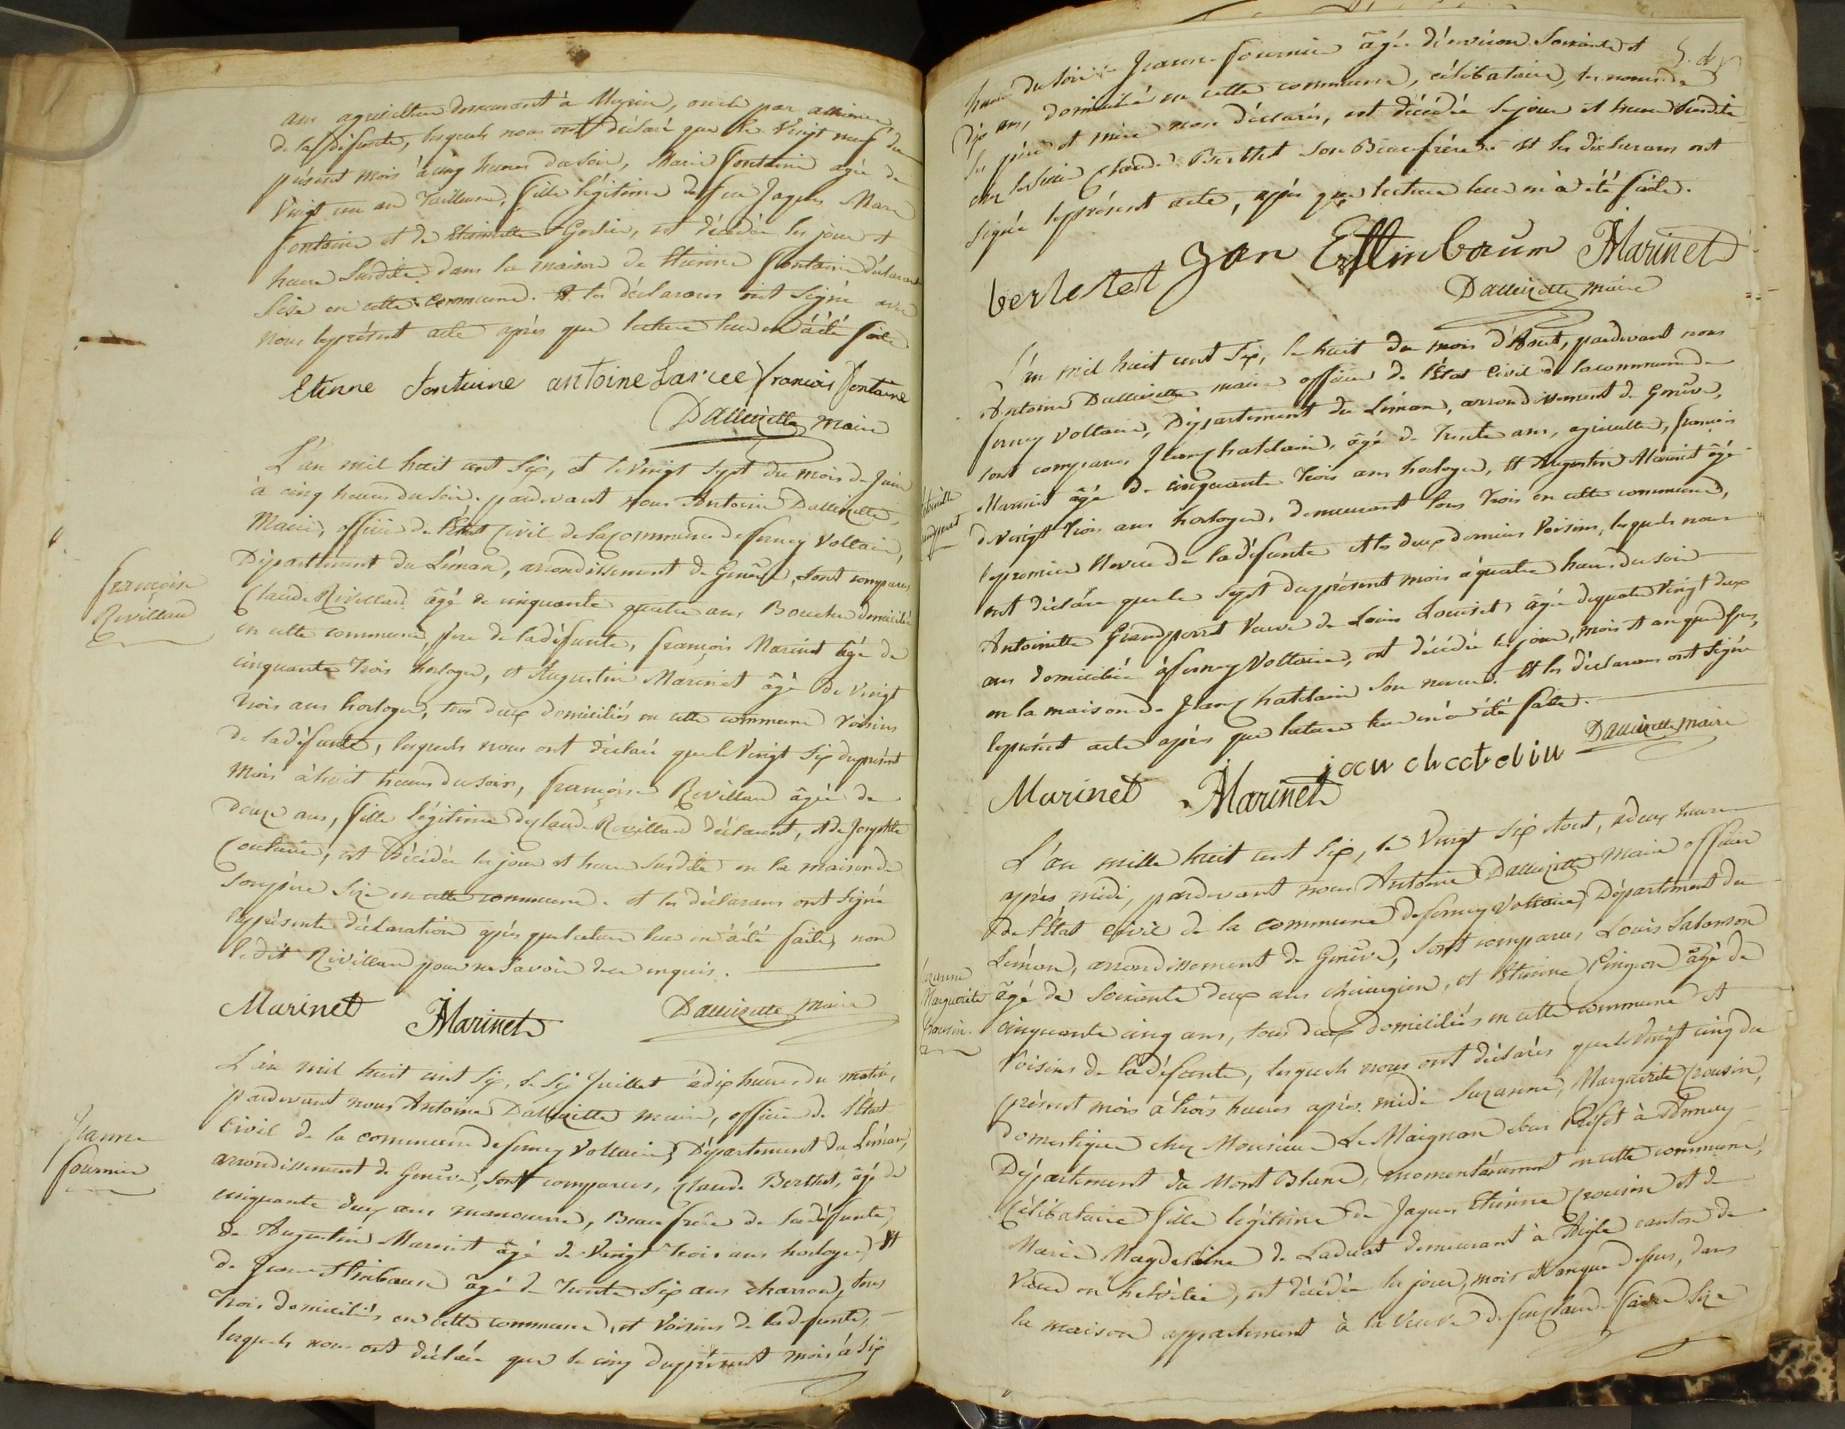 ans agriculteur demeurant à Meyrin, oncle par alliance
de la défunte, lesquels nous ont déclaré que le Vingt neuf du
présent mois à cinq heures du soir, Marie fontaine agée de
Vingt un an Tailleuse, fille légitime de feu Jaques Marie
fontaine et de Etiennette est décédée les jour et
heure Susdite dans la maison de Etienne fontaine déclarant
Sise en cette commune. Et les déclarans ont Signé avec
Nous le présent acte après que lecture leur en a été faite
Etienne fontaine antoine Larcee francois fontaine
Dallizette maire
L'an mil huit cent Six, et le Vingt Sept du mois de Juin
à cinq heures du soir, pardevant nous Antoine Dallizette
Maire, officier de l'état Civil de la Commune de ferney Voltaire,
Département du Léman, arrondissement de Genêve, Sont comparus
Claude Révillard âgé de cinquante quatre ans Boucher domicilié
en cette commune, père de la défunte, françois Marinet âgé de
cinquante Trois horloger, et Augustin Marinet âgé de Vingt
trois ans horloger, tous deux domiciliés en cette commune voisins
de la défunte, lesquels nous ont déclaré que le Vingt Six du présent
Mois à huit heures du soir, françoise Révillard âgée de
douze ans, fille légitime de Claude Révillard déclarant, et de Josephte
est décédée les jour et heure Susdite en la maison de
Son père Size en cette commune. et les déclarans ont Signé
la présente déclaration après que lecture leur en a été faite, non
le dit Révillard pour ne Savoir de ce enquis.
Marinet Marinet Dallizette Maire
françoise
Révillard
L'an mil huit cent Six, le Six Juillet à dix heures du matin,
pardevant nous Antoine Dallizette maire, officier de l'état
Civil de la commune de ferney Voltaire, Département du Léman,
arrondissement de Genêve, Sont comparus, Claude Berthet, âgé de
cinquante deux ans manoeuvre, Beau frère de la défunte,
de Augustin Marinet âgé de Vingt Trois ans horloger, et
de Jean âgé de Trente Six ans charron, tous
trois domiciliés en cette commune, et Voisins de la défunte,
lesquels nous ont déclaré que le cinq du présent mois à Six
Jeanne
fournier
heures du soir Jeanne fournier âgée d'environ Soixante et
Dix ans, domiciliée en cette commune, célibataire, les noms de
Ses père et mère non déclarés, est décédée les jour et heure Susdite
chez le Sieur Claude Berthet Son Beaufrère. et les déclarans ont
Signé le présent acte, après que lecture leur en a été faite.
bertetet Jan Esslinbaum Marinet
Dallizette maire
L'an mil huit cent Six, le huit du mois d'Aout, pardevant nous
Antoine Dallizette maire officier de l'état Civil de la commune de
ferney Voltaire, Département du Léman, arrondissement de Genêve,
Sont comparus Jean Chatelain, âgé de Trente ans, agriculteur, françois
Marinet âgé de cinquante Trois ans horloger, et Augustin Marinet âgé
de vingt Trois ans horloger, demeurant tous Trois en cette commune,
le premier Neveu de la défunte et les deux derniers Voisins, lesquels nous
ont déclaré que le Sept du présent mois à quatre heures du soir
Antoinette Grandperret Veuve de Louis Louiset, âgée de quatre Vingt deux
ans domiciliée à ferney Voltaire, est décédée les jour, mois et an que dessus,
en la maison de Jean Chatelain Son neveu. et les déclarans ont Signé
le présent acte après que lecture leur en a été faite.
Dallizette Maire
Marinet Marinet jean chatelain
L'an mille huit cent Six, le Vingt Six Aout, à deux heures
après midi, pardevant nous Antoine Dallizette Maire officier
de l'État Civil de la commune de ferney Voltaire, Département du
Léman, arrondissement de Genêve, Sont comparus, Louis Salomon
âgé de Soixante deux ans chirurgien, et Etienne Pingeon âgé de
cinquante cinq ans, tous deux domiciliés en cette commune et
Voisins de la défunte, lesquels nous ont déclarés que le Vingt cinq du
présent mois à trois heures après midi Suzanne, Marguerite Crousin,
domestique chez Monsieur Le Maignan Sous Préfet à Annecy
Département du Mont Blanc, momentanément en cette commune,
Célibataire fille légitime de Jaques Etienne Crousin et de
Marie Magdeleine de Laduat demeurant à Aigle canton de
Vaud en helvétie, est décédée les jour, mois et an que dessus, dans
la maison appartenant à la Veuve de feu Claude favre Size
Suzanne
Marguerite
Crousin